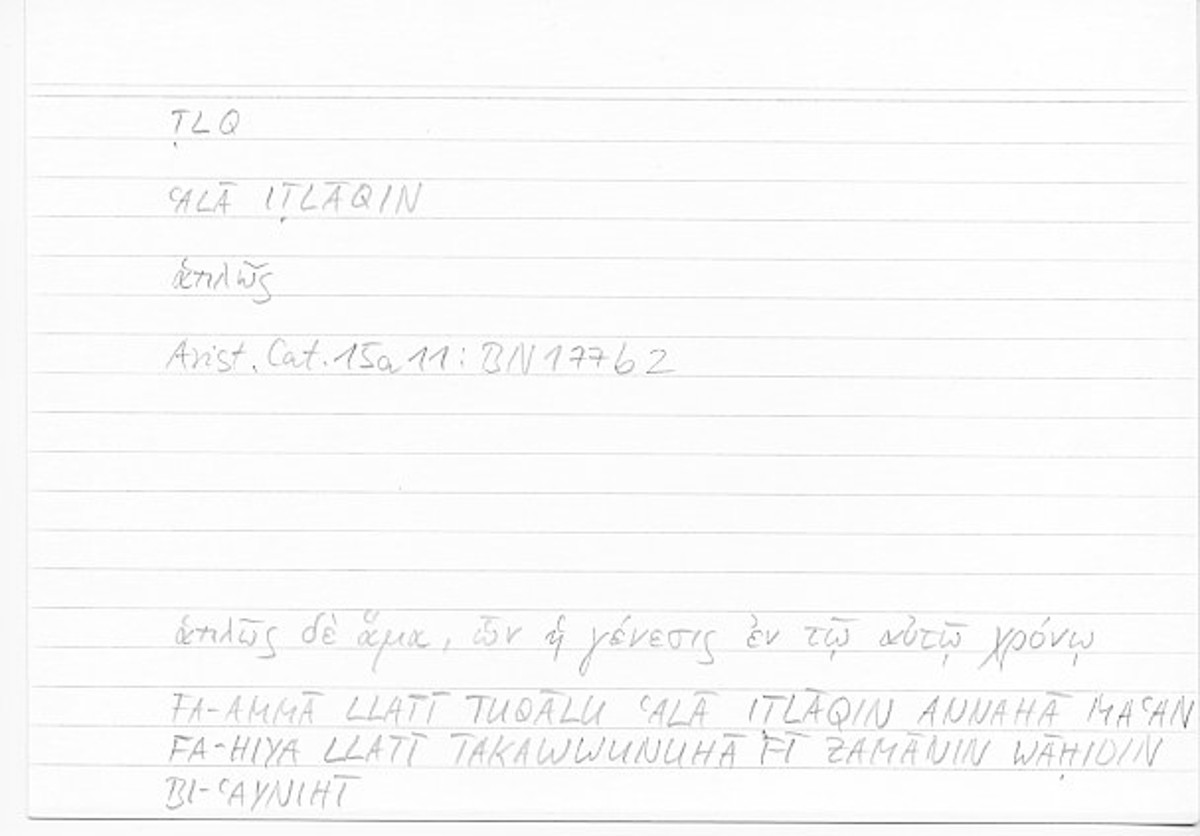 ṬLQ
ʿALĀ IṬLĀQIN
ἁπλῶς
Arist. Cat. 15a11: BN 177b2
ἁπλῶς δὲ ἅμα, ὧν ἡ γένεσις ἐν τῷ αὐτῷ χρόνῳ
FA-AMMĀ LLATĪ TUQĀLU ʿALĀ IṬLĀQIN ANNAHĀ MAʿAN
FA-HIYA LLATĪ TAKAWWUNUHĀ FĪ ZAMĀNIN WĀḤIDIN
BI-ʿAYNIHĪ